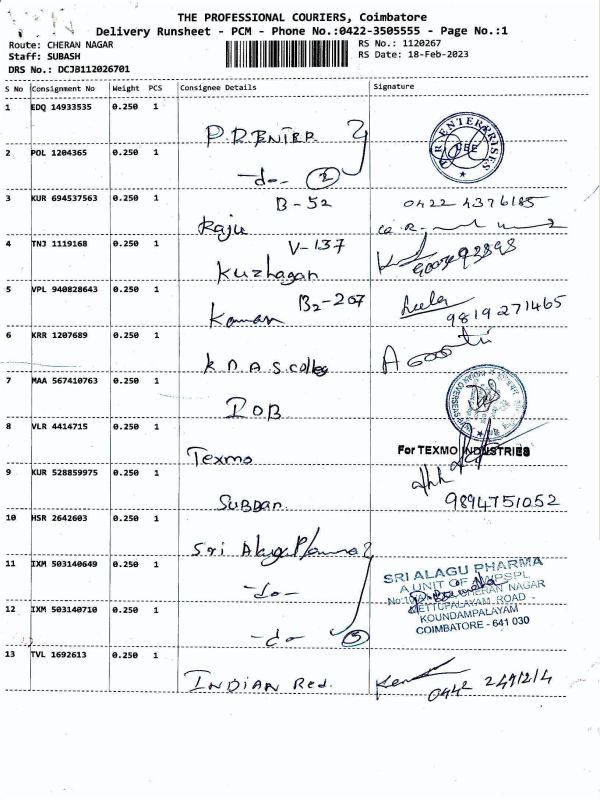 THE PROFESSIONAL COURIERS, Coimbatore
Delivery Runsheet - PCM - Phone No.:0422-3505555 - Page No.:1
Route: CHERAN NAGAR
Staff: SUBASH
DRS No.: DCJB112026701
RS No.: 1120267
RS Date: 18-Feb-2023
S No Consignment No Weight PCS Consignee Details Signature
1 EDQ 14933535 0.250 1
P.R.ENTER
R.R. ENTERPRISES
CBE
2 POL 1204365 0.250 1
-do- 2
3 KUR 694537563 0.250 1
B-52 0422 4376185
Raju
4 TNJ 1119168 0.250 1
V-137
Kuzhagan 9003493898
5 VPL 940828643 0.250 1
B2-207
Leela
9819271465
6 KRR 1207689 0.250 1
K.N.A.S. College
7 MAA 567410763 0.250 1
IOB
8 VLR 4414715 0.250 1
Texmo
For TEXMO INDUSTRIES
9 KUR 528859975 0.250 1
Subban 9894751052
10 HSR 2642603 0.250 1
Sri Alagu Pharma
11 IXM 503140649 0.250 1
-do-
SRI ALAGU PHARMA
A UNIT OF
CHERAN NAGAR
METTUPALAYAM ROAD -
KOUNDAMPALAYAM
COIMBATORE - 641 030
12 IXM 503140710 0.250 1
-do- 3
13 TVL 1692613 0.250 1
INDIAN Red.